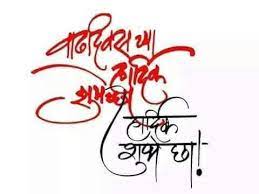 वाढदिवसाच्या
हार्दिक
शुभेच्छा
हार्दिक
शुभेच्छा!